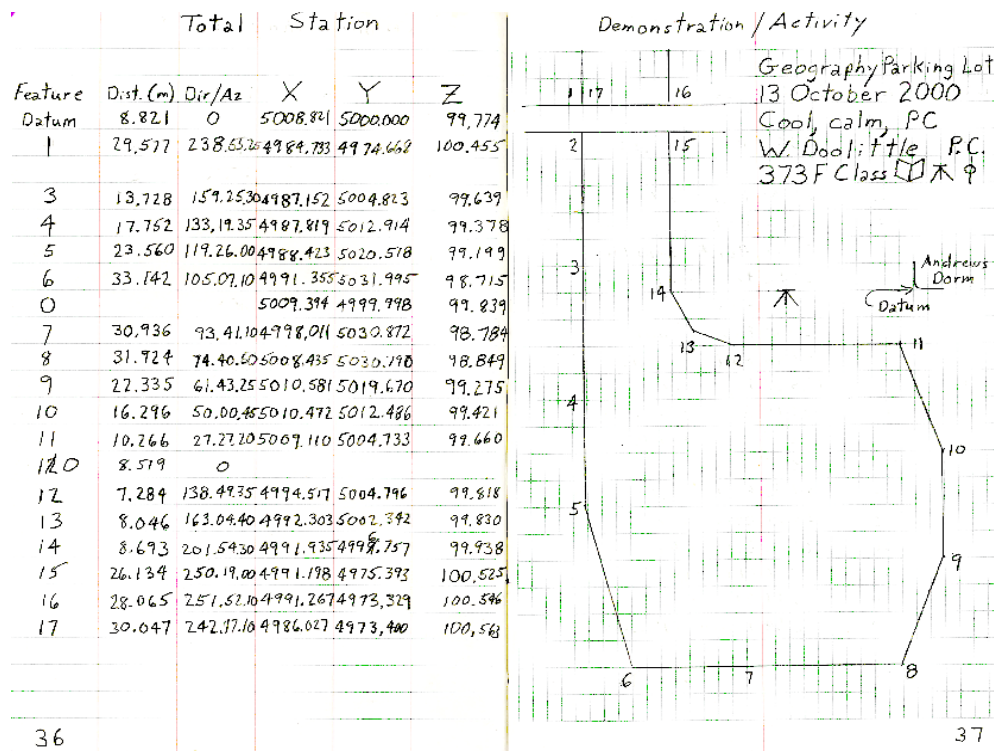 Total Station
Feature Dist. (m) Dir/Az X Y Z
Datum 8.821 0 5008.821 5000.000 99.774
1 29.577 238.53.25 4984.733 4974.668 100.455
3 13.728 159.25.30 4987.152 5004.823 99.639
4 17.752 133.19.35 4987.819 5012.914 99.378
5 23.560 119.26.00 4988.423 5020.518 99.199
6 33.142 105.07.10 4991.355 5031.995 98.715
0 5009.394 4999.998 99.839
7 30.936 93.41.10 4998.011 5030.872 98.784
8 31.924 74.40.50 5008.435 5030.790 98.849
9 22.335 61.43.25 5010.581 5019.670 99.275
10 16.296 50.00.45 5010.472 5012.486 99.421
11 10.266 27.27.20 5009.110 5004.733 99.660
0 8.519 0
12 7.284 138.49.35 4994.517 5004.796 99.818
13 8.046 163.04.40 4992.303 5002.342 99.830
14 8.693 201.54.30 4991.935 4996.757 99.938
15 26.134 250.19.00 4991.198 4975.393 100.525
16 28.065 251.52.10 4991.267 4973.329 100.546
17 30.047 242.17.10 4986.027 4973.400 100.563
36
Demonstration / Activity
Geography Parking Lot
13 October 2000
Cool, calm, PC
W. Doolittle P.C.
373F Class
1 17 16
2 15
3
14
Andrews
Dorm
Datum
13 12 11
4
10
5
9
6 7 8
37